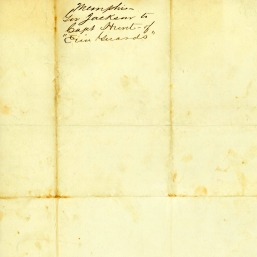 Memphis
Gov Jackson to
Capt Hunt of
"Erin Guards"